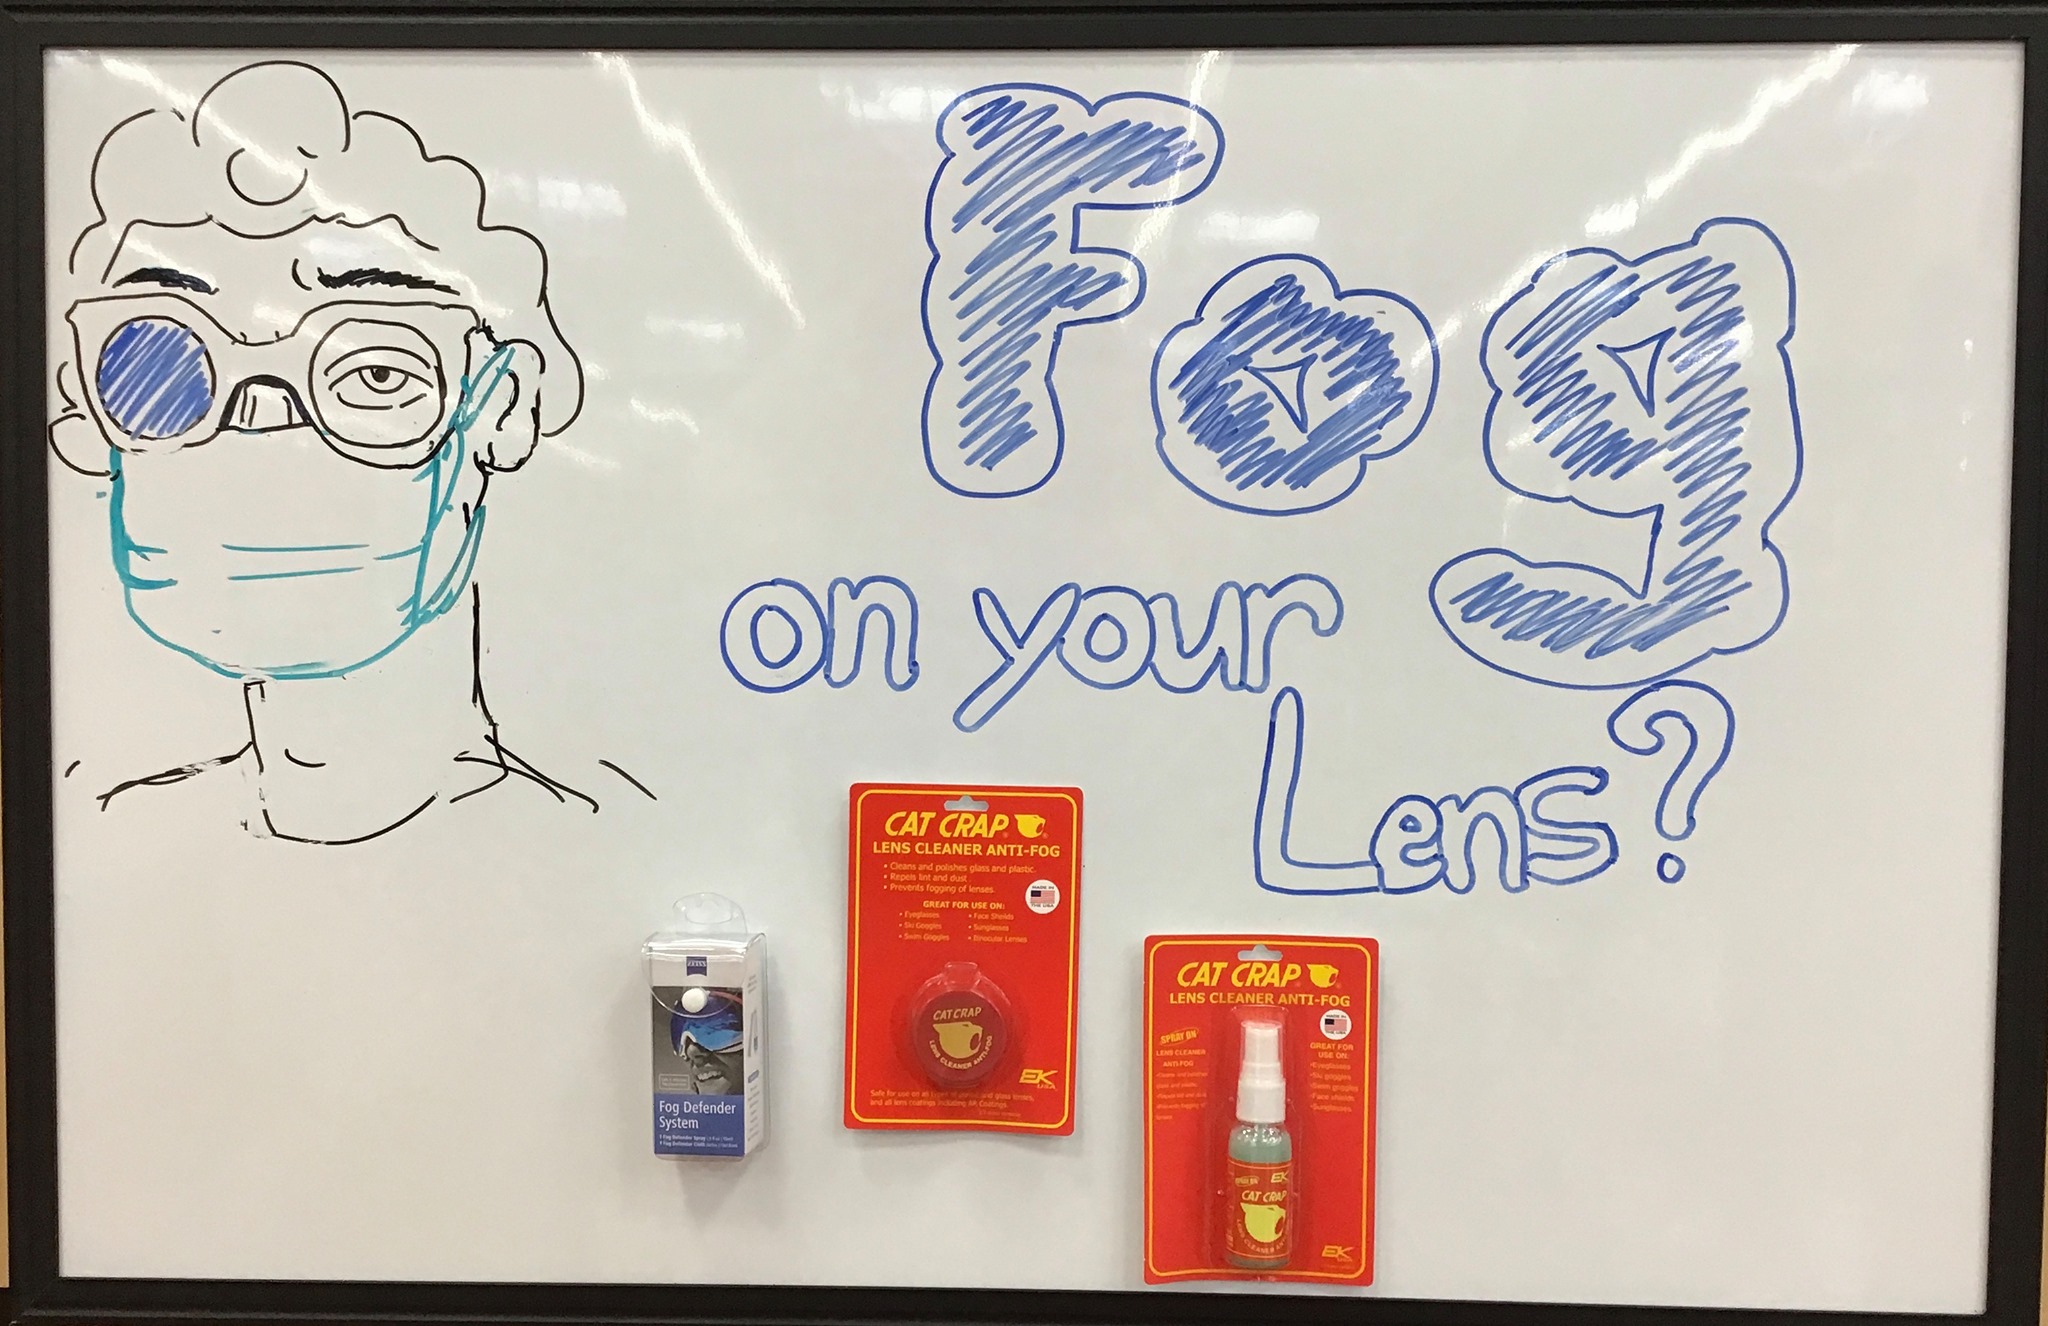 Fog
on your
Lens?
ZEISS
Fog Defender
System
1 Fog Defender Spray
1 Fog Defender Cloth
CAT CRAP
LENS CLEANER ANTI-FOG
• Cleans and polishes glass and plastic.
• Repels lint and dust
• Prevents fogging of lenses.
MADE IN
THE USA
GREAT FOR USE ON:
• Eyeglasses
• Ski Goggles
• Swim Goggles
• Face Sheilds
• Sunglasses
• Binocular Lenses
CAT CRAP
LENS CLEANER ANTI-FOG
EK
USA
Safe for use on all types of and glass lenses,
and all lens coatings including AR Coatings.
CAT CRAP
LENS CLEANER ANTI-FOG
SPRAY ON
LENS CLEANER
ANTI-FOG
MADE IN
THE USA
GREAT FOR
USE ON:
•Eyeglasses
•Ski goggles
•Swim goggles
•Face shields
•Sunglasses
SPRAY ON
EK
CAT CRAP
LENS CLEANER
EK